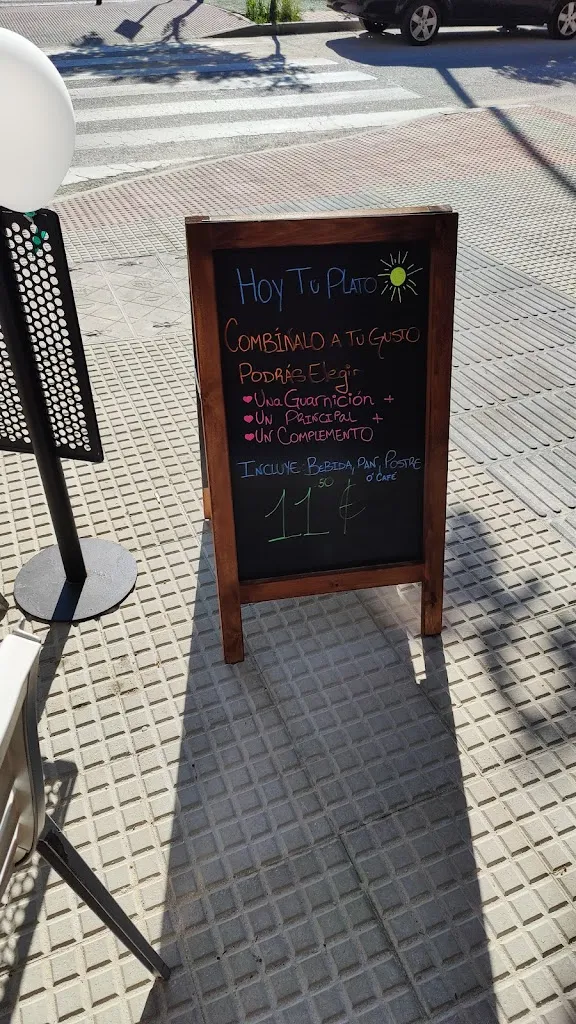 Hoy Tu Plato
Combínalo a tu Gusto
Podrás Elegir
Una Guarnición +
Un Principal +
Un Complemento
Incluye: Bebida, Pan, Postre
ó Café
11.50 €